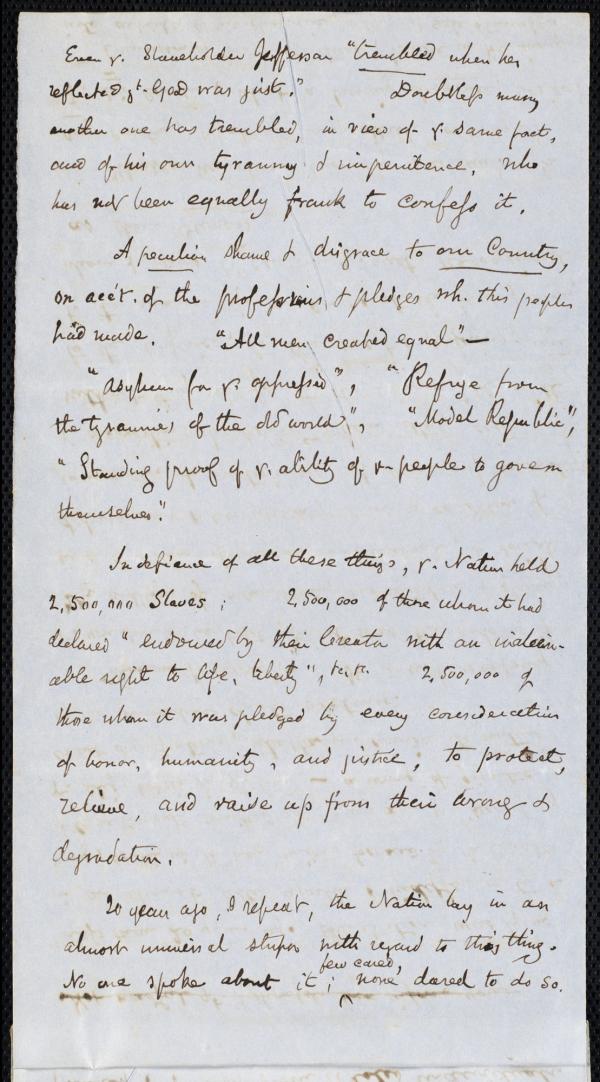 Even y. Slaveholder Jefferson "trembled when he
reflected yt. God was just." Doubtless many
another one has trembled, in view of y. same fact,
and of his own tyranny & impenitence, who
has not been equally frank to confess it.
A peculiar shame & disgrace to our Country,
on acc't. of the professions & pledges wh. this people
had made. "All men created equal" —
"asylum for y. oppressed", "Refuge from
the tyrannies of the old world", "Model Republic",
"Standing proof of y. ability of y. people to govern
themselves".
In defiance of all these things, y. Nation held
2,500,000 Slaves; 2,500,000 of those whom it had
declared "endowed by their Creator with an inalien-
able right to life, liberty", &c. &c. 2,500,000 of
those whom it was pledged by every consideration
of honor, humanity, and justice, to protect,
relieve, and raise up from their wrongs &
degradation.
20 years ago, I repeat, the Nation lay in an
almost universal stupor with regard to this thing.
few cared,
No one spoke about it; none dared to do so.